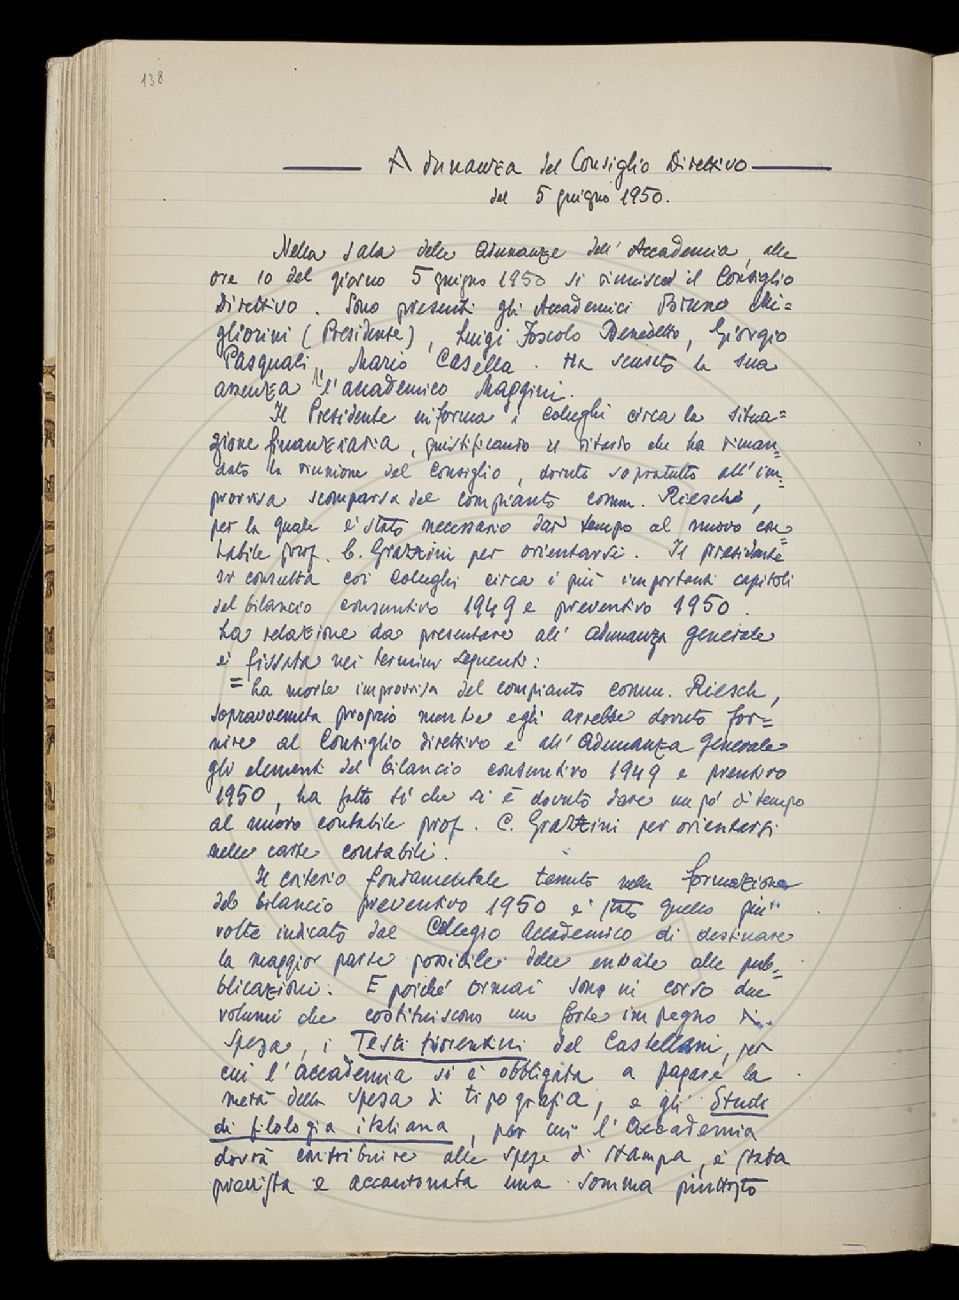 138
Adunanza del Consiglio Direttivo
del 5 giugno 1950.
Nella sala delle Adunanze dell'Accademia, alle
ore 10 del giorno 5 giugno 1950 si riunisce il Consiglio
Direttivo. Sono presenti gli Accademici Bruno Mi=
gliorini (Presidente), Luigi Foscolo Benedetto, Giorgio
Pasquali, Mario Casella. Ha scusato la sua
assenza l'accademico Maggini.
Il Presidente informa i colleghi circa la situa=
zione finanziaria, giustificando il ritardo che ha riman=
dato la riunione del Consiglio, dovuto sopratutto all'im=
provvisa scomparsa del compianto comm. Riesch,
per la quale è stato necessario dar tempo al nuovo con=
tabile prof. C. Grazzini per orientarsi. Il presidente
si consulta coi Colleghi circa i più importanti capitoli
del bilancio consuntivo 1949 e preventivo 1950.
La relazione da presentare all'Adunanza generale
è fissata nei termini seguenti:
= La morte improvvisa del compianto comm. Riesch,
sopravvenuta proprio mentre egli avrebbe dovuto for=
nire al Consiglio direttivo e all'Adunanza generale
gli elementi del bilancio consuntivo 1949 e prentivo
1950, ha fatto sì che si è dovuto dare un po' di tempo
al nuovo contabile prof. C. Grazzini per orientarsi
nelle carte contabili.
Il criterio fondamentale tenuto nella formazione
del bilancio preventivo 1950 è stato quello più
volte indicato dal Collegio Accademico di destinare
la maggior parte possibile delle entrate alle pub=
blicazioni. E poiché ormai sono in corso due
volumi che costituiscono un forte impegno di
spesa, i Testi fiorentini del Castellani, per
cui l'Accademia si è obbligata a pagare la
metà della spesa di tipografia, e gli Studi
di filologia italiana, per cui l'Accademia
dovrà contribuire alle spese di stampa, è stata
prevista e accantonata una somma piuttosto